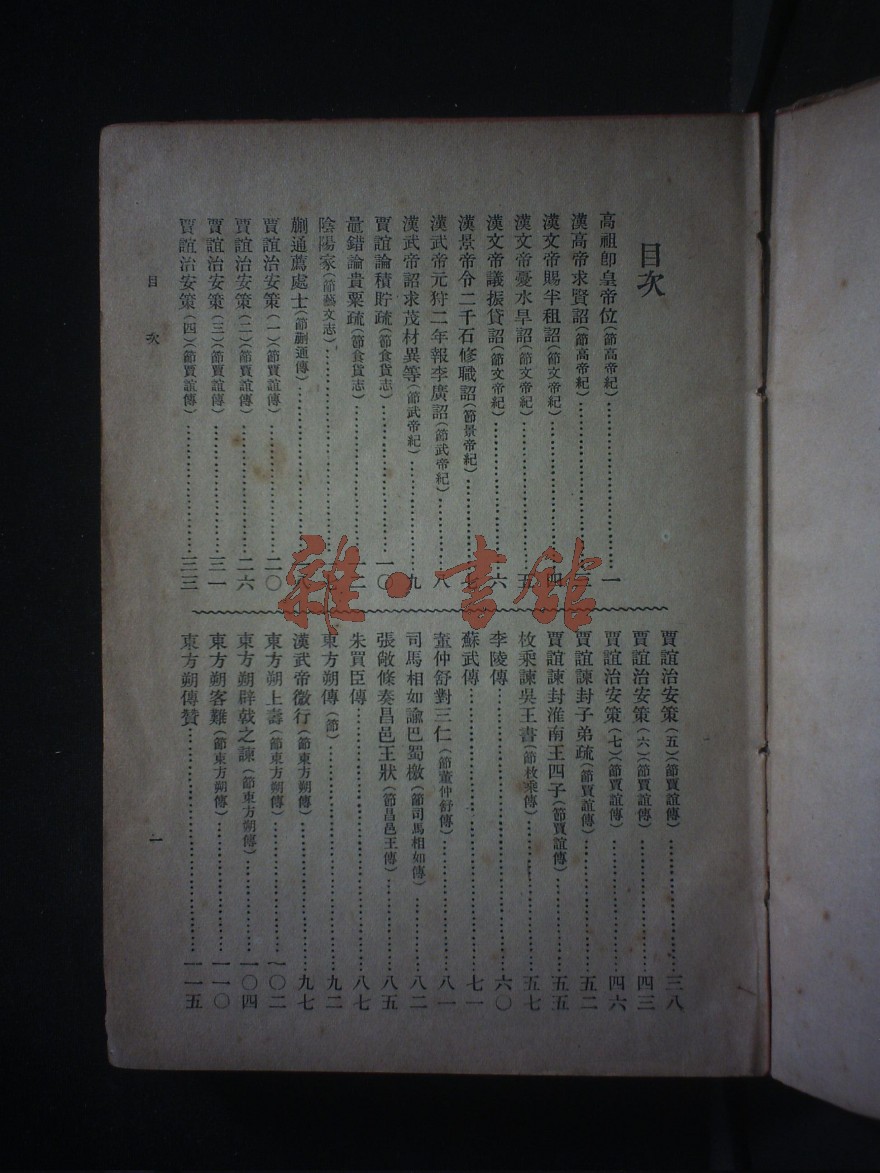 目次
高祖卽皇帝位(節高帝紀)……一
漢高帝求賢詔(節高帝紀)……三
漢文帝賜半租詔(節文帝紀)……四
漢文帝憂水旱詔(節文帝紀)……五
漢文帝議振貸詔(節文帝紀)……六
漢景帝令二千石修職詔(節景帝紀)……七
漢武帝元狩二年報李廣詔(節武帝紀)……八
漢武帝詔求茂材異等(節武帝紀)……九
賈誼論積貯疏(節食貨志)……一〇
鼂錯論貴粟疏(節食貨志)……一二
陰陽家(節藝文志)……
蒯通薦處士(節蒯通傳)……
賈誼治安策(一)(節賈誼傳)……二〇
賈誼治安策(二)(節賈誼傳)……二六
賈誼治安策(三)(節賈誼傳)……三一
賈誼治安策(四)(節賈誼傳)……三三
賈誼治安策(五)(節賈誼傳)……三八
賈誼治安策(六)(節賈誼傳)……四三
賈誼治安策(七)(節賈誼傳)……四六
賈誼諫封子弟疏(節賈誼傳)……五二
賈誼諫封淮南王四子(節賈誼傳)……五五
枚乘諫吳王書(節枚乘傳)……五七
李陵傳……六〇
蘇武傳……七一
董仲舒對三仁(節董仲舒傳)……八一
司馬相如諭巴蜀檄(節司馬相如傳)……八二
張敞條奏昌邑王狀(節昌邑王傳)……八五
朱買臣傳……八七
東方朔傳(節)……九二
漢武帝微行(節東方朔傳)……九七
東方朔上壽(節東方朔傳)……一〇二
東方朔辟戟之諫(節東方朔傳)……一〇四
東方朔客難(節東方朔傳)……一一〇
東方朔傳贊……一一五
目次
一
雜·書館